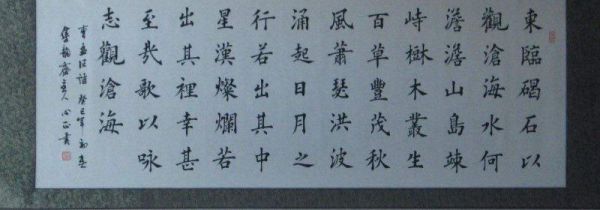 東臨碣石以
觀滄海水何
澹澹山島竦
峙樹木叢生
百草豐茂秋
風蕭瑟洪波
涌起日月之
行若出其中
星漢燦爛若
出其裡幸甚
至哉歌以咏
志觀滄海
曹孟德詩 癸巳年 初春
齋主人 書